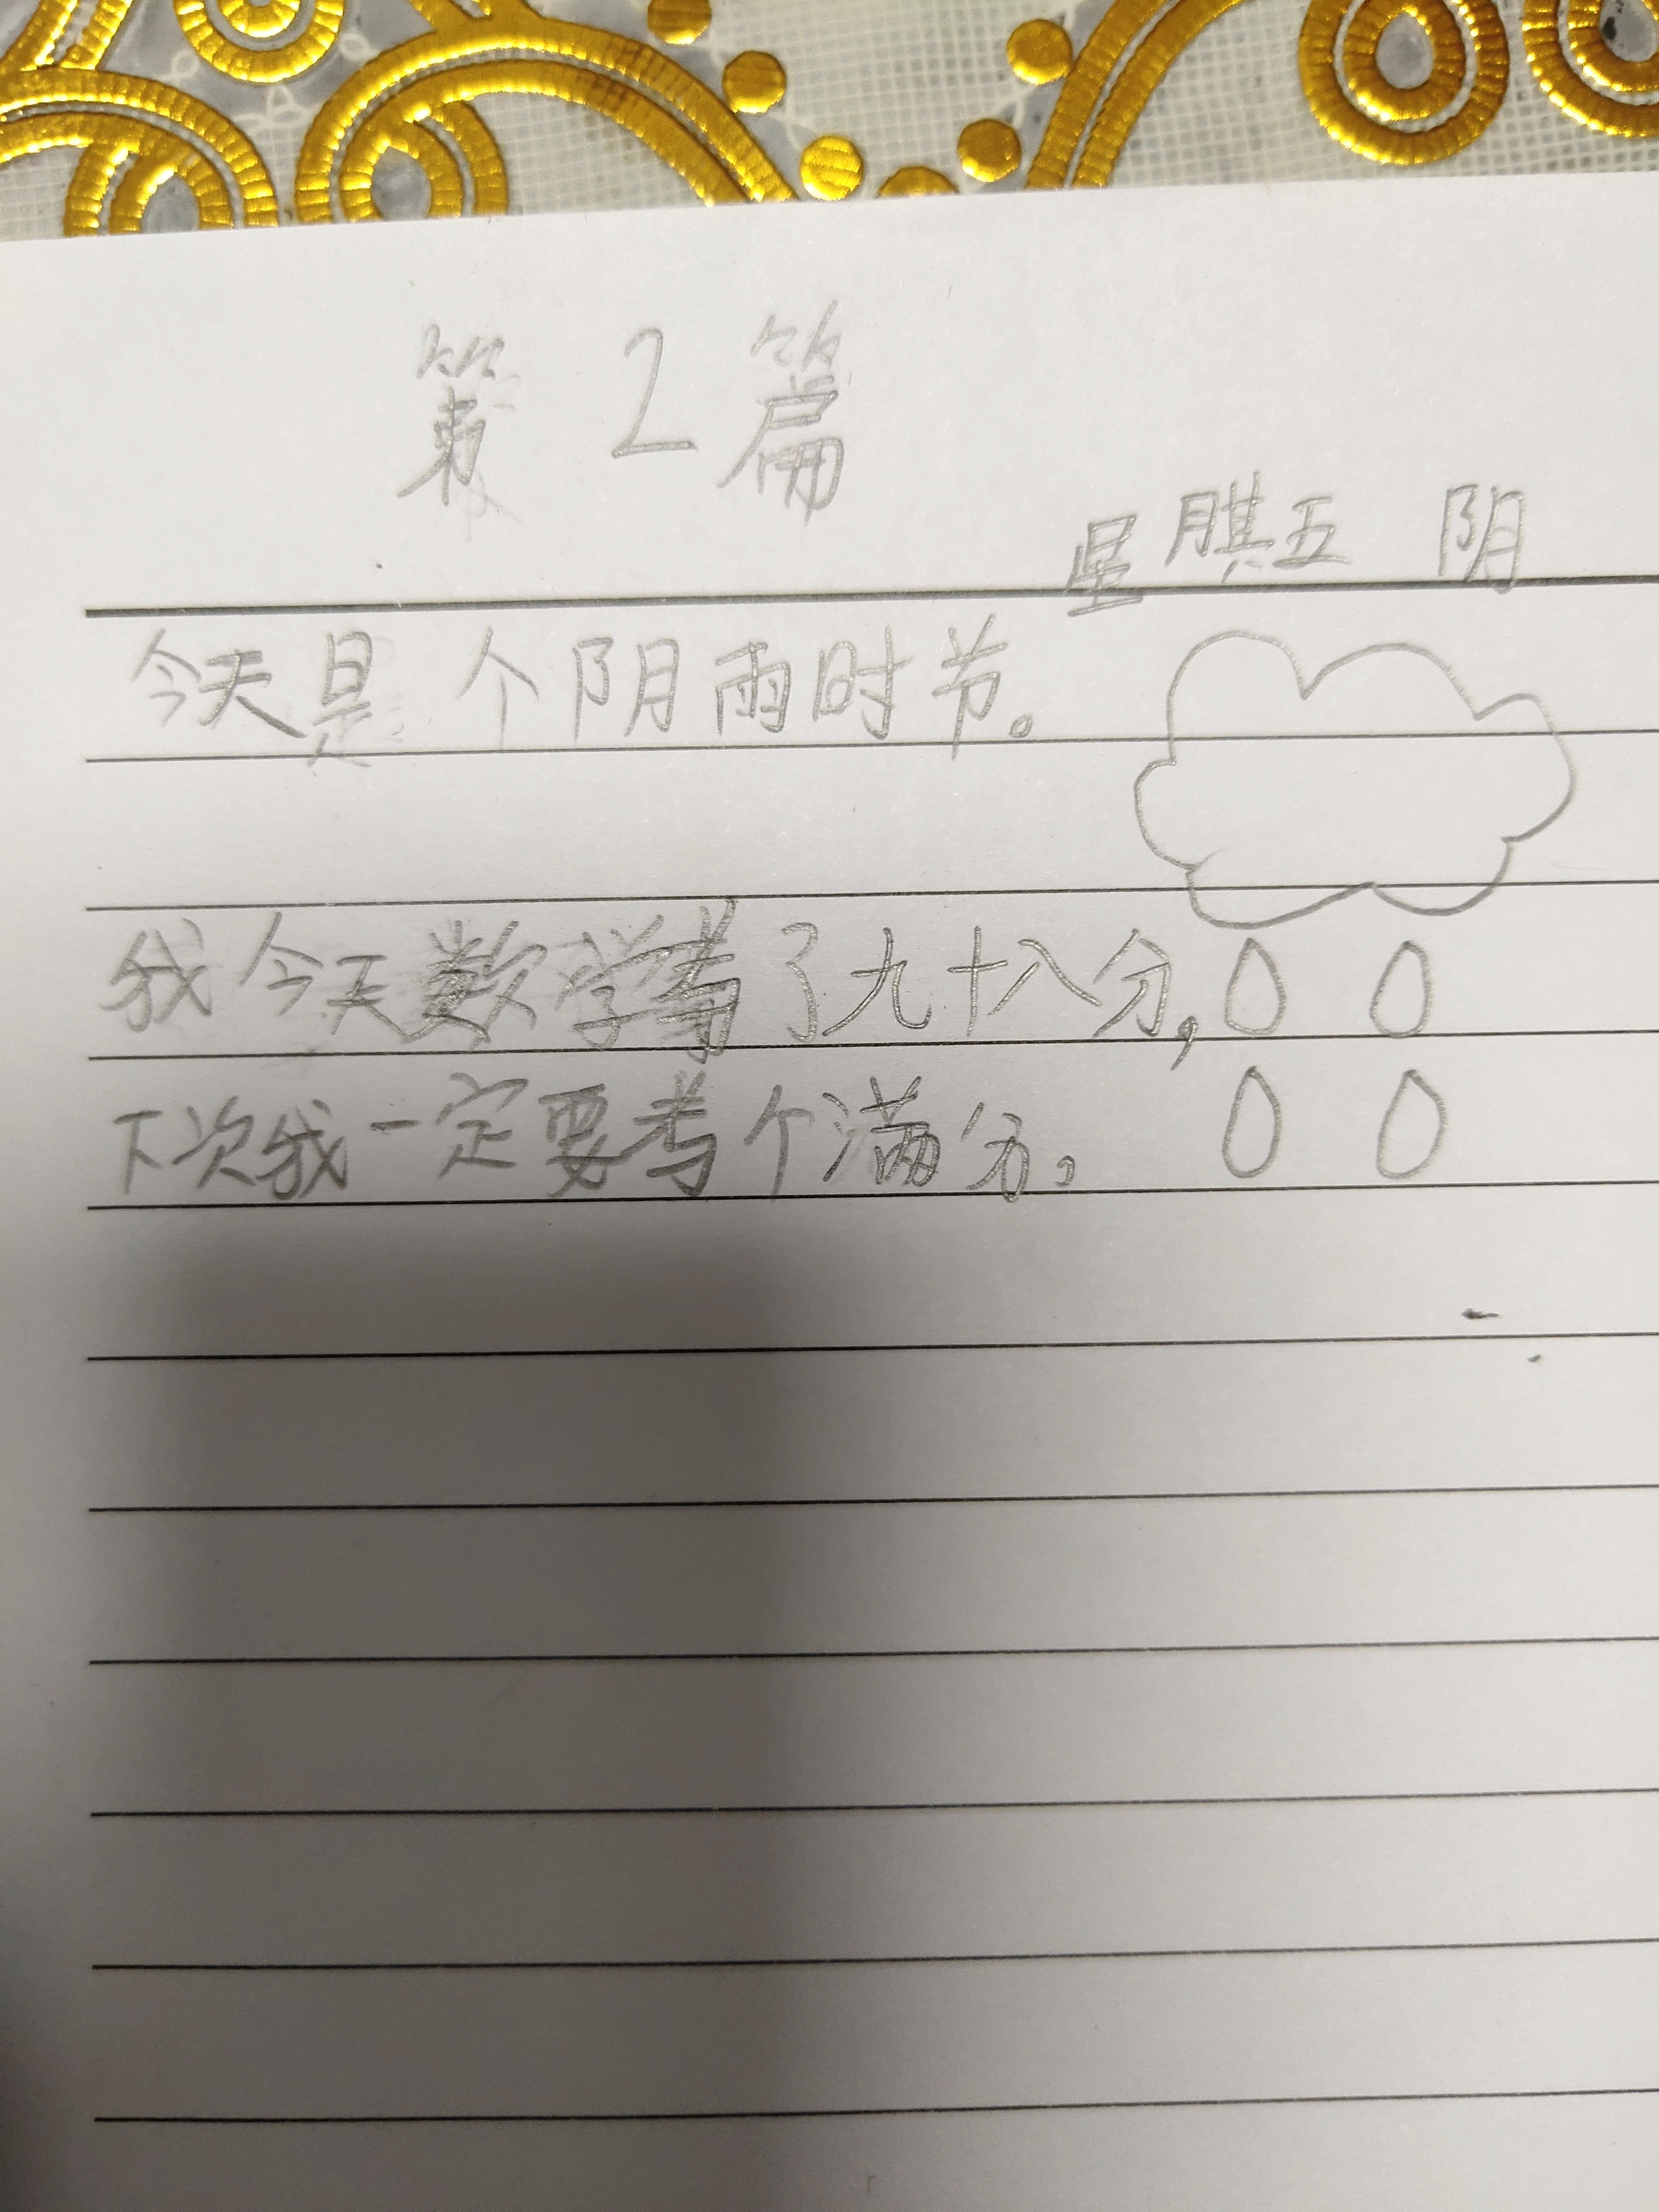 第2篇
星期五 阴
今天是个阴雨时节。
我今天数学考了九十八分,
下次我一定要考个满分。